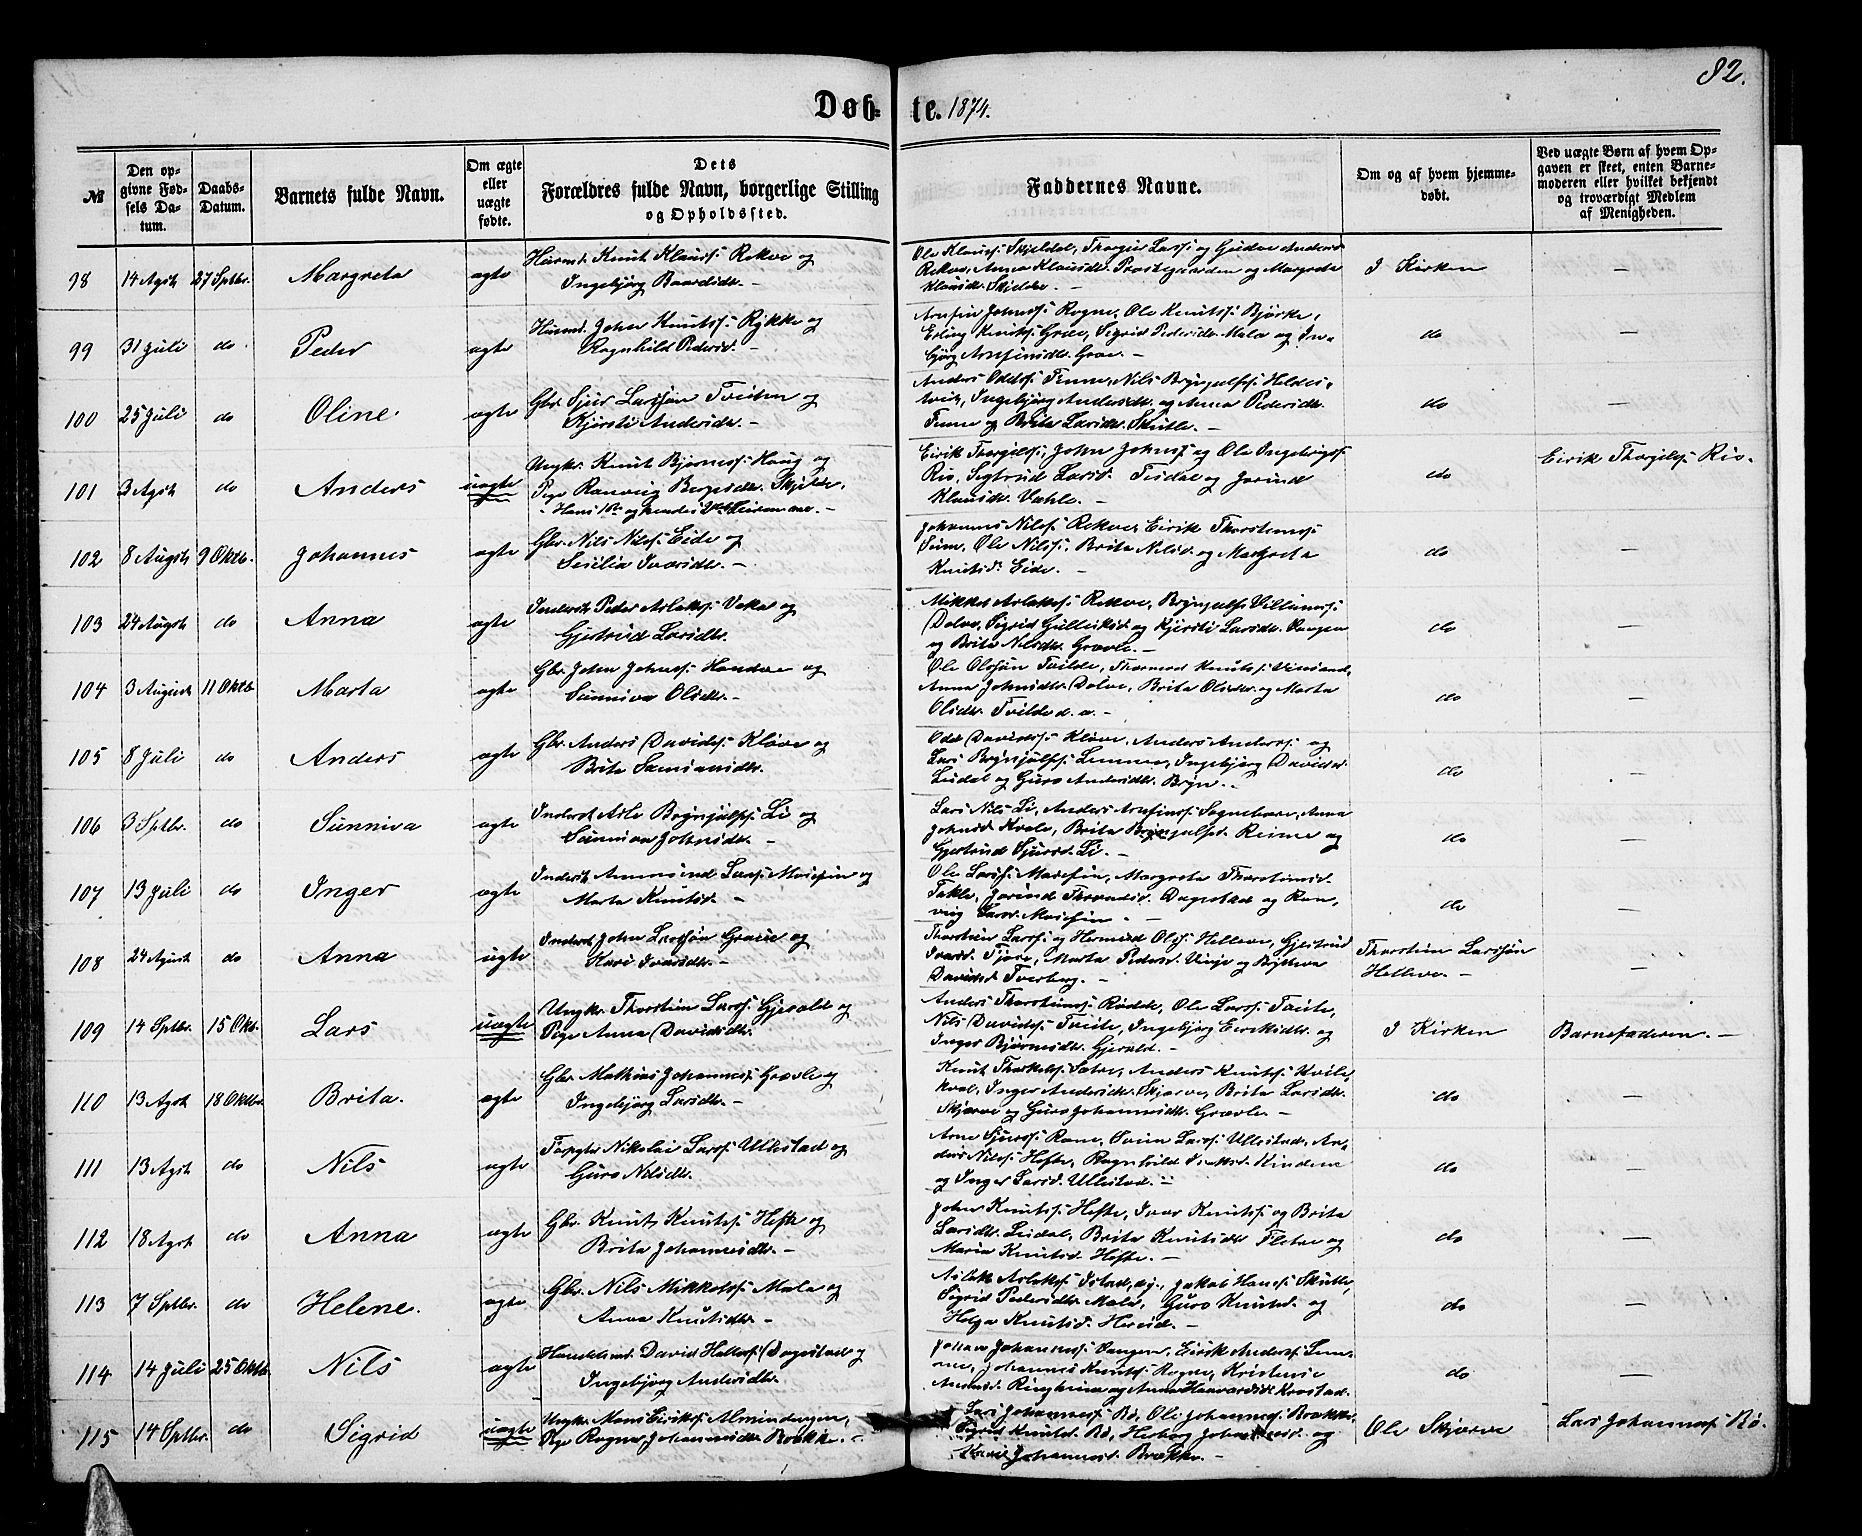 82.
Døb- te. 1874.
№
Den op-
givne Fød-
sels Da-
tum.
Daabs-
Datum.
Barnets fulde Navn.
Om ægte
eller
uægte
fødte.
Dets
Forældres fulde Navn, borgerlige Stilling
og Opholdssted.
Faddernes Navne.
Om og af hvem hjemme-
døbt.
Ved uægte Børn af hvem Op-
gaven er skeet, enten Barne-
moderen eller hvilket bekjendt
og troværdigt Medlem
af Menigheden.
98 14 Agst 27 Sptbr. Margreta ægte
Husmd. Knut Klauss. Rekve og
Ingebjørg Baardsdtr. –
Ole Klauss. Skjeldal, Thorgier Larss. og Gudve Anders
Rekve, Anna Klausdtr. Prestegaarden og Margreta
Klausdr. Skjelde. –
I Kirken –
99 31 Juli do Peder ægte
Husmd. John Knutss. Rykke og
Ragnhild Pedersd. –
Arnfin Johnss. Rogne, Ole Knutss. Bjørke,
Erling Knutss. Græe, Sigrid Pedersdr. Mala og In-
bjørg Arnfinsdtr. Grae. –
do –
100 25 Juli do Oline ægte
Gbr. Sjur Larssøn Tveiten og
Kjersti Andersdr. –
Anders Oddss. Finne, Nils Brynjulfss. Heldes-
tveit, Ingebjørg Andersdtr. og Anna Pedersdtr.
Finne og Brita Larsdtr. Skutle. –
do –
101 3 Agst do Anders uægte
Ungkr. Knut Bjørness. Haug og
Pige Ranveig Bergesdtr. Skjelde,
– Hans 1ste og hendes 2det Leiermaal. –
Eirik Thorgilss., John Johnss. og Ole Ingebrigtss.
Rio, Sigtrud Larsd. Tesdal og Jorind
Klausdr. Væhle. –
do Eirik Thorgilss. Rio. –
102 8 Augst 9 Oktb. Johannes ægte
Gbr. Nils Nilss. Eide og
Sesilia Ivarsdtr. –
Johannes Nilss. Rekve, Eirik Thorsteinss.
Seim, Ole Nilss., Brita Nilsd. og Margreta
Knutsd. Eide. –
do –
103 24 Augst do Anna ægte
Inderst. Peder Aslakss. Væke og
Gjertrud Larsdtr.
Mikkel Aslakss. Rekve, Brynjulf Villumss.
Dolve, Sigrid Gulleiksd. og Kjersti Larsdtr. Vangen
og Brita Nilsdtr. Grovle. –
do –
104 3 August 11 Oktb Marta ægte
Gbr. John Johnss. Hondve og
Sunniva Olsdtr. –
Ole Olssøn Tvilde, Thormod Knutss. Vinsand,
Anna Johnsdtr. Dolve, Brita Olsdtr. og Marta
Olsdtr. Tvilde d. æ. –
do –
105 8 Juli do Anders ægte
Gbr. Anders Davidss. Kløve og
Brita Samsonsdtr.
Odd Davidss. Kløve, Anders Anderss. og
Lars Brynjulfss. Lemme, Ingebjørg Davidsd.
Leidal og Guro Andersdtr. Bryn. –
do –
106 3 Sptbr. do Sunniva ægte
Inderst Atle Brynjulfss. Li og
Sunniva Johnsdtr. –
Lars Nils Li, Anders Arnfinss. Sognehove, Anna
Johnsd. Kvale, Brita Brynjulfsd. Reime og
Gjertrud Sjursd. Li. –
do –
107 13 Juli do Inger ægte
Inderst. Ammund Larss. Mossfin og
Marta Knutsd. –
Ole Larss. Mossfin, Margreta Thorsteinsd.
Takle, Jorind Throndsd. Dagestad og Ran-
veig Larsd. Mossfin –
do –
108 24 Agust do Anna ægte
Inderst. John Larssøn Graue og
Kari Ivarsdtr. –
Thorstein Larss. og Hermund Olss. Helleve, Gjertrud
Ivarsd. Tjore, Marta Pedersd. Vinje og Brytteva
Davidsd. Tverberg. –
Thorstein Larssøn
Helleve. –
–
109 14 Sptbr. 15 Okt. Lars uægte
Ungkr. Thorstein Larss. Gjerald og
Pige Anna Davidsdtr.
Anders Thorsteinss. Rødde, Ole Larss. Tveite,
Nils Davidss. Tveite, Ingebjørg Eiriksdtr. og
Inger Bjørnsdtr. Gjerald. –
I Kirken Barnefaderen. –
110 13 Agst 18 Oktbr Brita. ægte
Gbr. Mathias Johanness. Grovle og
Ingebjørg Larsdtr. –
Knut Thorkelss. Sætre, Anders Knutss. Kvile-
kval, Inger Andersdr. Skjerve, Brita Larsdtr.
Skjerve og Guro Johannesdtr. Grovle. –
do –
111 13 Agst do Nils ægte
Forpagter Nikolai Larss. Ullestad og
Guro Nilsdtr.
Arne Sjurss. Rone, Svein Larss. Ullestad, An-
ders Nilss. Hefte, Ragnhild Isaksd. Kindem
og Inger Larsd. Ullestad. –
do –
112 18 Agst do Anna ægte
Gbr. Knut Knutss. Hefte og
Brita Johannesdtr. –
John Knutss. Hefte, Ivar Knutss. og Brita
Larsdtr. Leidal, Brita Knutsdtr. Fletre og
Maria Knutsd. Hefte. –
do –
113 7 Sptbr. do Helene. ægte
Gbr. Nils Mikkelss. Mala og
Anna Knutsdtr. –
Aslak Aslakss. Istad, dy., Jakob Hanss. Skutle,
Sigrid Pedersdtr. Mala, Guro Knutsd. og
Helga Knutsd. Hereid. –
do –
114 14 Juli 25 Oktb. Nils ægte
Handelsmd. David Helless. Dagestad og
Ingebjørg Andersdtr.
Johan Johanness. Vangen, Eirik Anderss. Lem-
me, Johannes Knutss. Rogne, Kristense
Andersd. Ringheim og Anna Haavardsd. Krostad.
do –
115 14 Sptbr. do Sigrid uægte
Ungkr. Mons Eirikss. Almindingen,
Pige Ragna Johannesdtr. Brekke. –
Lars Johanness. Bø, Ole Johanness. Brække,
Sigrid Knutsd. Bø, Herborg Johannesd. og
Kari Johannesd. Brække. –
Ole Skjerve Lars Johanness. Bø.